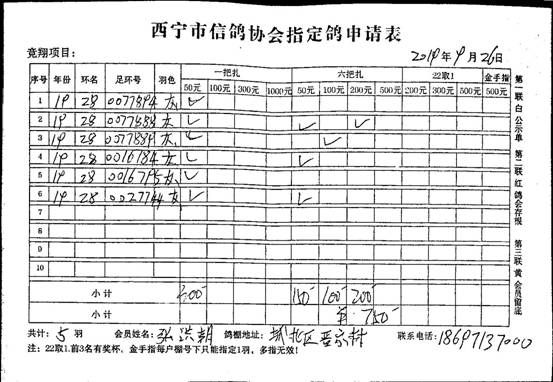 西宁市信鸽协会指定鸽申请表
竞翔项目： 2019年9月26日
序号 年份 环名 足环号 羽色 一把扎 六把扎 22取1 金手指
50元 100元 300元 1000元 50元 100元 200元 500元 200元 300元 500元 500元
1 19 28 0077894 灰 ✓
2 19 28 0077888 灰 ✓ ✓ ✓
3 19 28 0077889 灰 ✓ ✓
4 19 28 0016784 灰 ✓ ✓
5 19 28 0016795 灰 ✓
6 19 28 0027744 灰 ✓ ✓
7
8
9
10
小计 300 150 100 200
小计 750
共计：5羽 会员姓名：张洪 鸽棚地址：城北区晋家村 联系电话：18697137000
注：22取1.前3名有奖杯，金手指每户棚号下只能指定1羽，多指无效！
第一联 白 公示单 第二联 红 鸽会存根 第三联 黄 会员留底